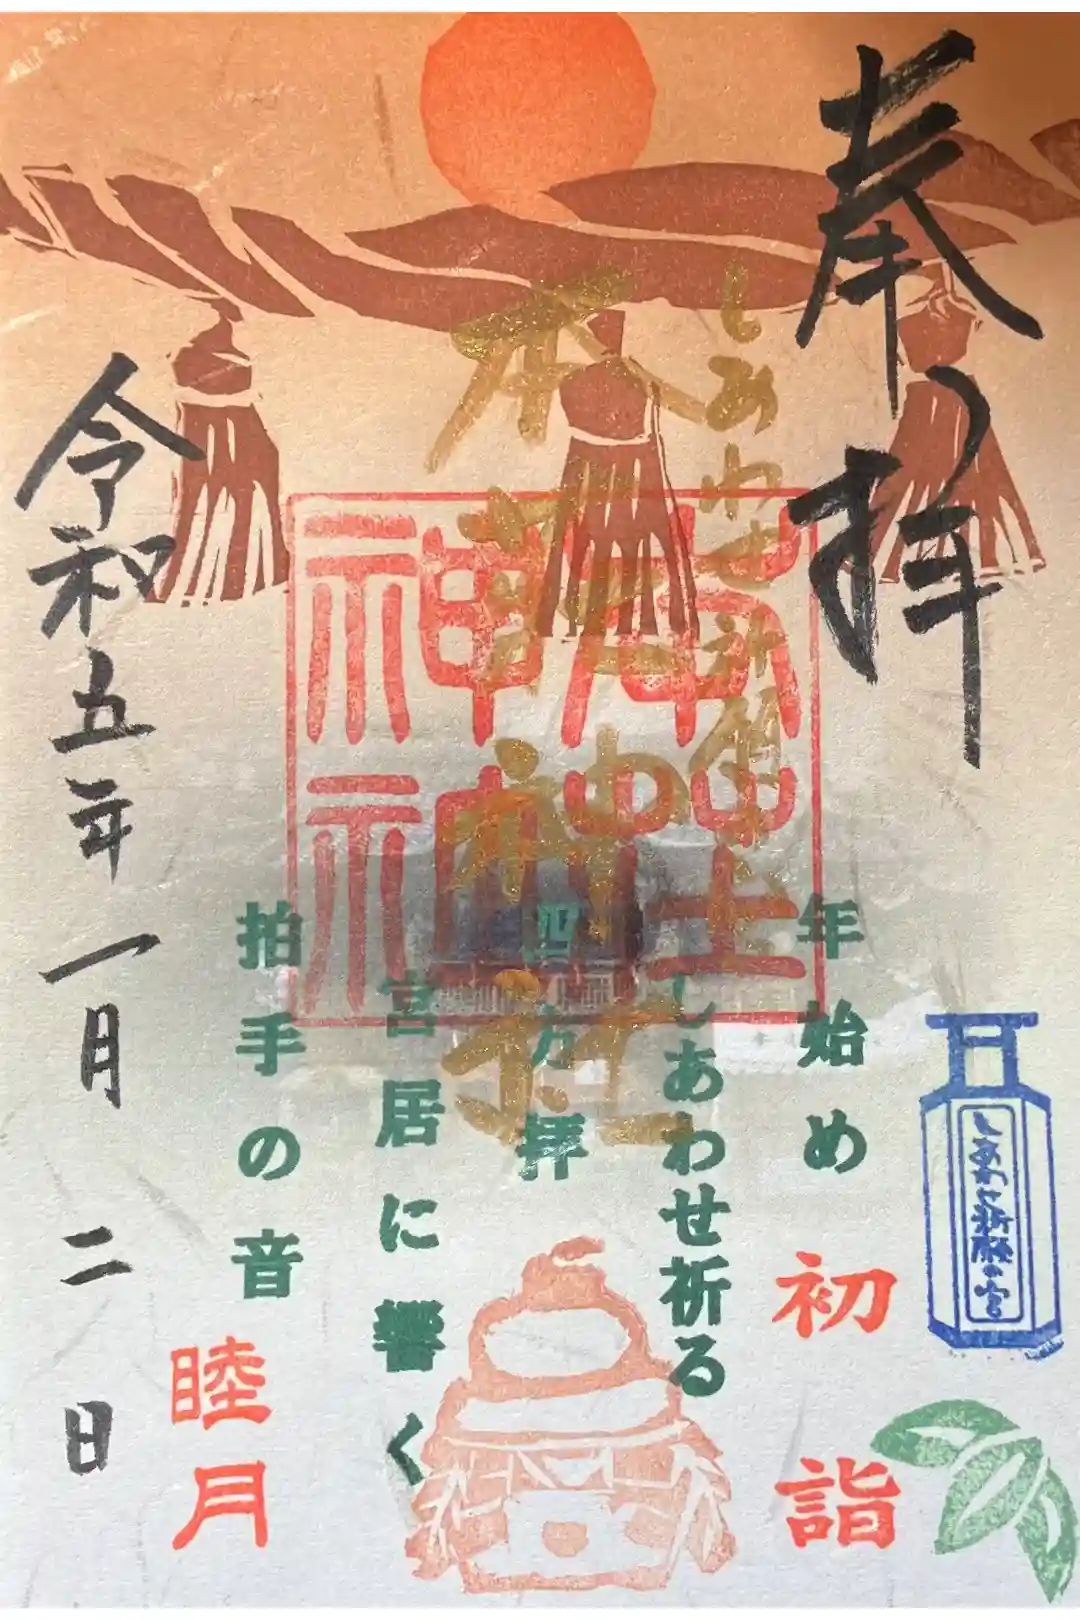 奉拝
しあわせ祈願の宮
初詣
年始め
しあわせ祈る
しあわせ祈願
神社
四方拝
宮居に響く
拍手の音
睦月
令和五年一月二日